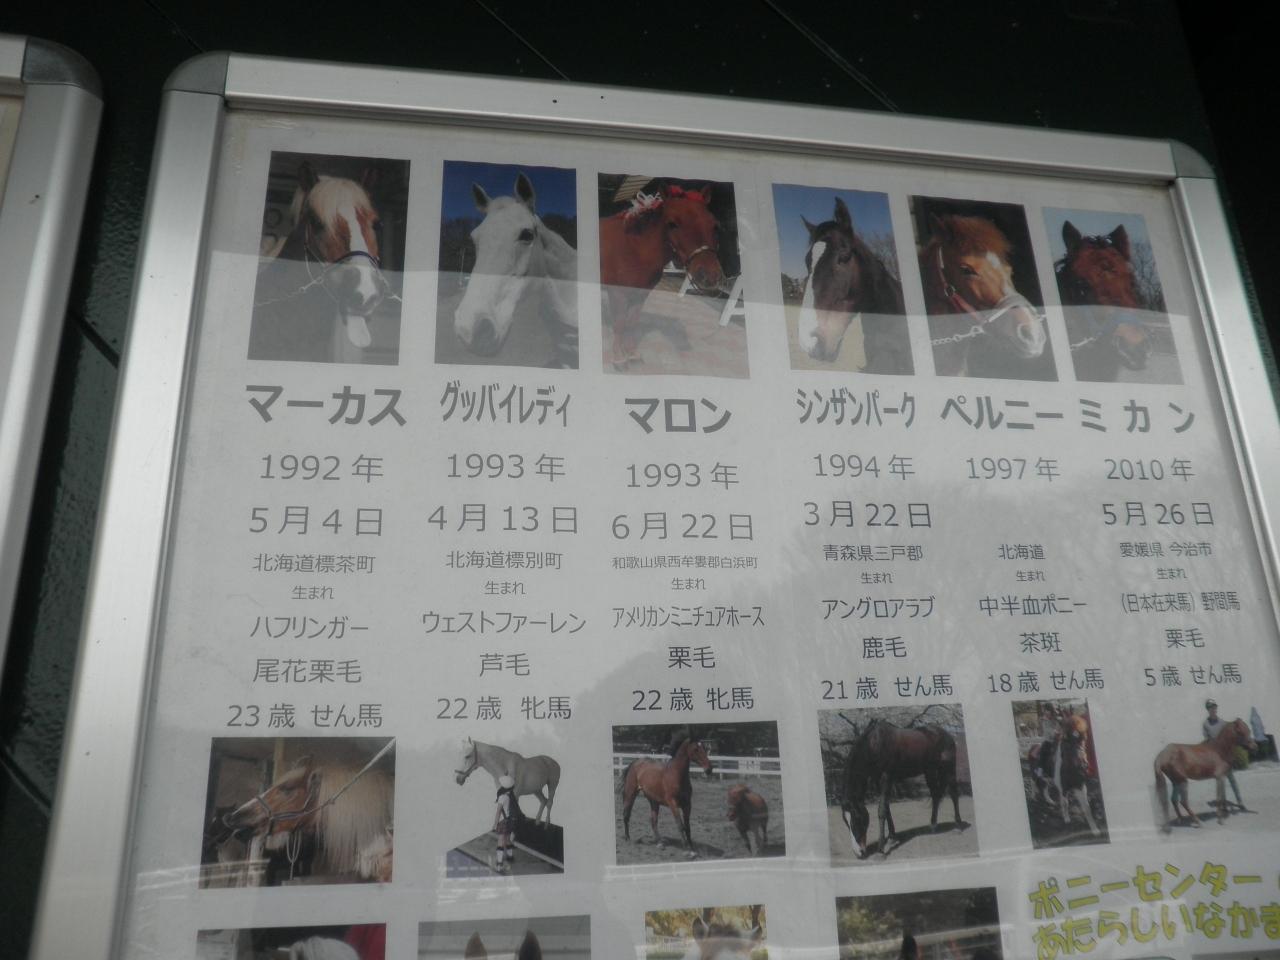 マーカス
1992年
5月4日
北海道標茶町
生まれ
ハフリンガー
尾花栗毛
23歳 せん馬
グッバイレディ
1993年
4月13日
北海道標別町
生まれ
ウェストファーレン
芦毛
22歳 牝馬
マロン
1993年
6月22日
和歌山県西牟婁郡白浜町
生まれ
アメリカンミニチュアホース
栗毛
22歳 牝馬
シンザンパーク
1994年
3月22日
青森県三戸郡
生まれ
アングロアラブ
鹿毛
21歳 せん馬
ペルニー
1997年
北海道
生まれ
中半血ポニー
茶斑
18歳 せん馬
ミカン
2010年
5月26日
愛媛県 今治市
生まれ
(日本在来馬) 野間馬
栗毛
5歳 せん馬
ポニーセンター
あたらしいなかま